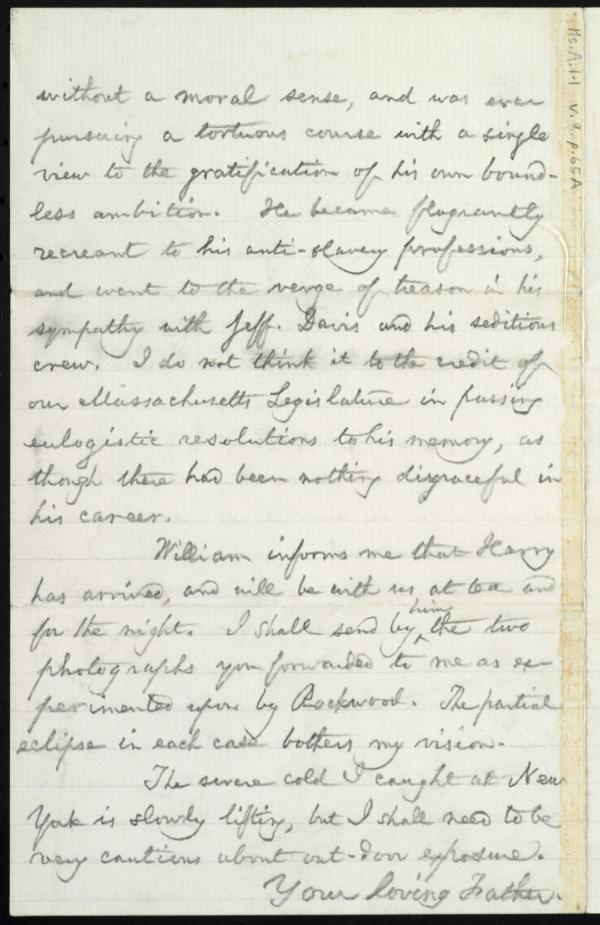 without a moral sense, and was ever
pursuing a tortuous course with a single
view to the gratification of his own bound-
less ambition. He became flagrantly
recreant to his anti-slavery professions,
and went to the verge of treason in his
sympathy with Jeff. Davis and his seditious
crew. I do not think it to the credit of
our Massachusetts Legislature in passing
eulogistic resolutions to his memory, as
though there had been nothing disgraceful in
his career.
William informs me that Harry
has arrived, and will be with us at tea and
for the night. I shall send by him the two
photographs you forwarded to me as ex-
perimented upon by Rockwood. The partial
eclipse in each case bothers my vision.
The severe cold I caught at New
York is slowly lifting, but I shall need to be
very cautious about out-door exposure.
Your loving Father.
Ms.A.1.1 v.8, p.65A